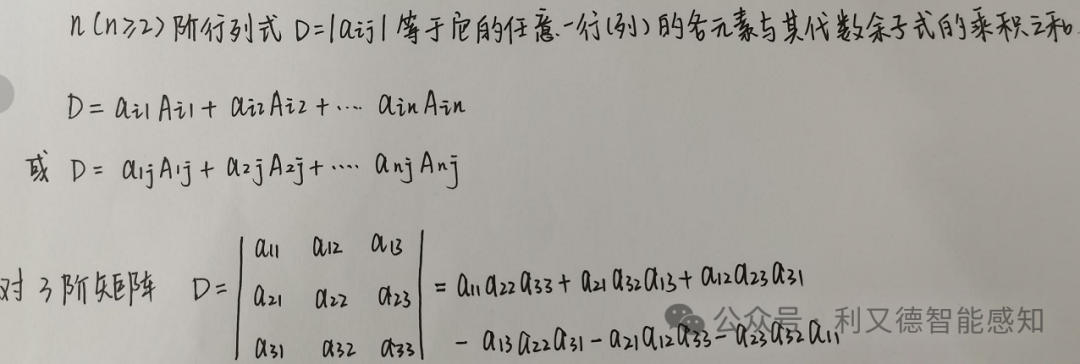 n(n≥2)阶行列式 D=|aij| 等于它的任意一行(列)的各元素与其代数余子式的乘积之和
D= ai1 Ai1 + ai2 Ai2 + ···· ain Ain
或 D= a1j A1j + a2j A2j + ···· anj Anj
对3阶矩阵 D= | a11 a12 a13 | = a11 a22 a33 + a21 a32 a13 + a12 a23 a31
| a21 a22 a23 |
| a31 a32 a33 | - a13 a22 a31 - a21 a12 a33 - a23 a32 a11
公众号 · 利又德智能感知